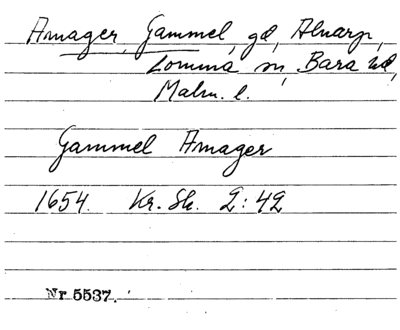 Amager, Gammel, gd, Alnarp,
Lomma sn, Bara hd,
Malm. l.
Gammel Amager
1654. Kr. Sk. 2:42
Nr 5537.